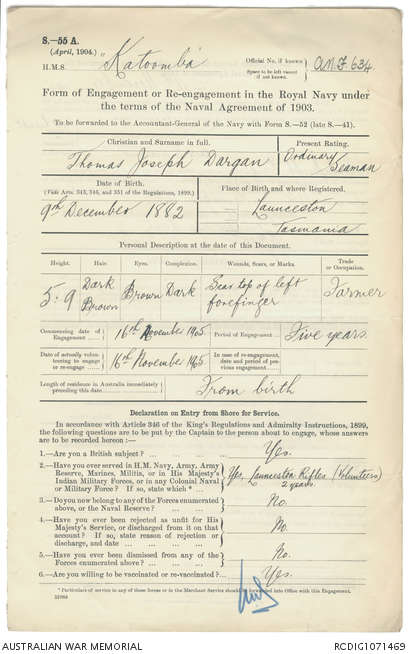 S.—55 A.
(April, 1904.)
H.M.S. "Katoomba"
Official No. if known } A.N.F. 634.
Space to be left vacant if not known.
Form of Engagement or Re-engagement in the Royal Navy under
the terms of the Naval Agreement of 1903.
To be forwarded to the Accountant-General of the Navy with Form S.—52 (late S.—41).
Christian and Surname in full. Present Rating.
Thomas Joseph Dargan Ordinary Seaman
Date of Birth. Place of Birth and where Registered.
(Vide Arts. 343, 346, and 351 of the Regulations, 1899.)
9th December 1882 Launceston
Tasmania
Personal Description at the date of this Document.
Height. Hair. Eyes. Complexion. Wounds, Scars, or Marks. Trade or Occupation.
5.9 Dark Brown Brown Dark Scar top of left forefinger Farmer
Commencing date of Engagement 16th November 1905 Period of Engagement Five years.
Date of actually volunteering to engage or re-engage 16th November 1905 In case of re-engagement, date and period of previous engagement
Length of residence in Australia immediately preceding this date From birth
Declaration on Entry from Shore for Service.
In accordance with Article 346 of the King's Regulations and Admiralty Instructions, 1899,
the following questions are to be put by the Captain to the person about to engage, whose answers
are to be recorded hereon :—
1.—Are you a British subject? Yes.
2.—Have you ever served in H.M. Navy, Army, Army
Reserve, Marines, Militia, or in His Majesty's
Indian Military Forces, or in any Colonial Naval
or Military Force? If so, state which *
Yes, Launceston Rifles (Volunteers)
2 years
3.—Do you now belong to any of the Forces enumerated
above, or the Naval Reserve? No.
4.—Have you ever been rejected as unfit for His
Majesty's Service, or discharged from it on that
account? If so, state reason of rejection or
discharge, and date No.
5.—Have you ever been dismissed from any of the
Forces enumerated above? No.
6.—Are you willing to be vaccinated or re-vaccinated? Yes.
* Particulars of service in any of these forces or in the Merchant Service should be forwarded into Office with this Engagement.
AUSTRALIAN WAR MEMORIAL
RCDIG1071469